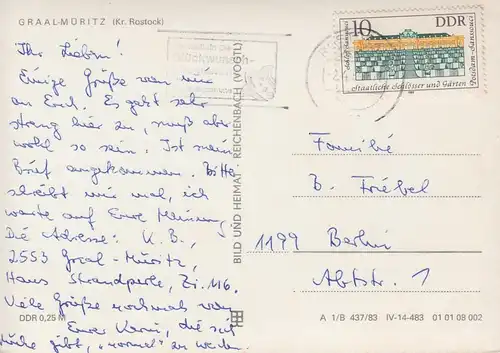 GRAAL-MÜRITZ (Kr. Rostock)
Ihr Lieben!
Einige Grüße von mir
an Euch. Es geht sehr
streng hier zu, muß aber
wohl so sein. Ist mein
Brief angekommen. Bitte
schreibt mir mal, ich
warte auf Eure Meinung.
Die Adresse: K. B.,
2553 Graal-Müritz,
Haus Strandperle, Zi. 116.
Viele Grüße nochmals von
Eurer Karin, die sich
Mühe gibt, "normal" zu werden.
DDR 0,25 M
BILD UND HEIMAT · REICHENBACH (VOGTL)
10 DDR
Schloß Sanssouci
Potsdam-Sanssouci
Staatliche Schlösser und Gärten
Familie
B. Friebel
1199 Berlin
Abtstr. 1
A 1/B 437/83 IV-14-483 01 01 08 002